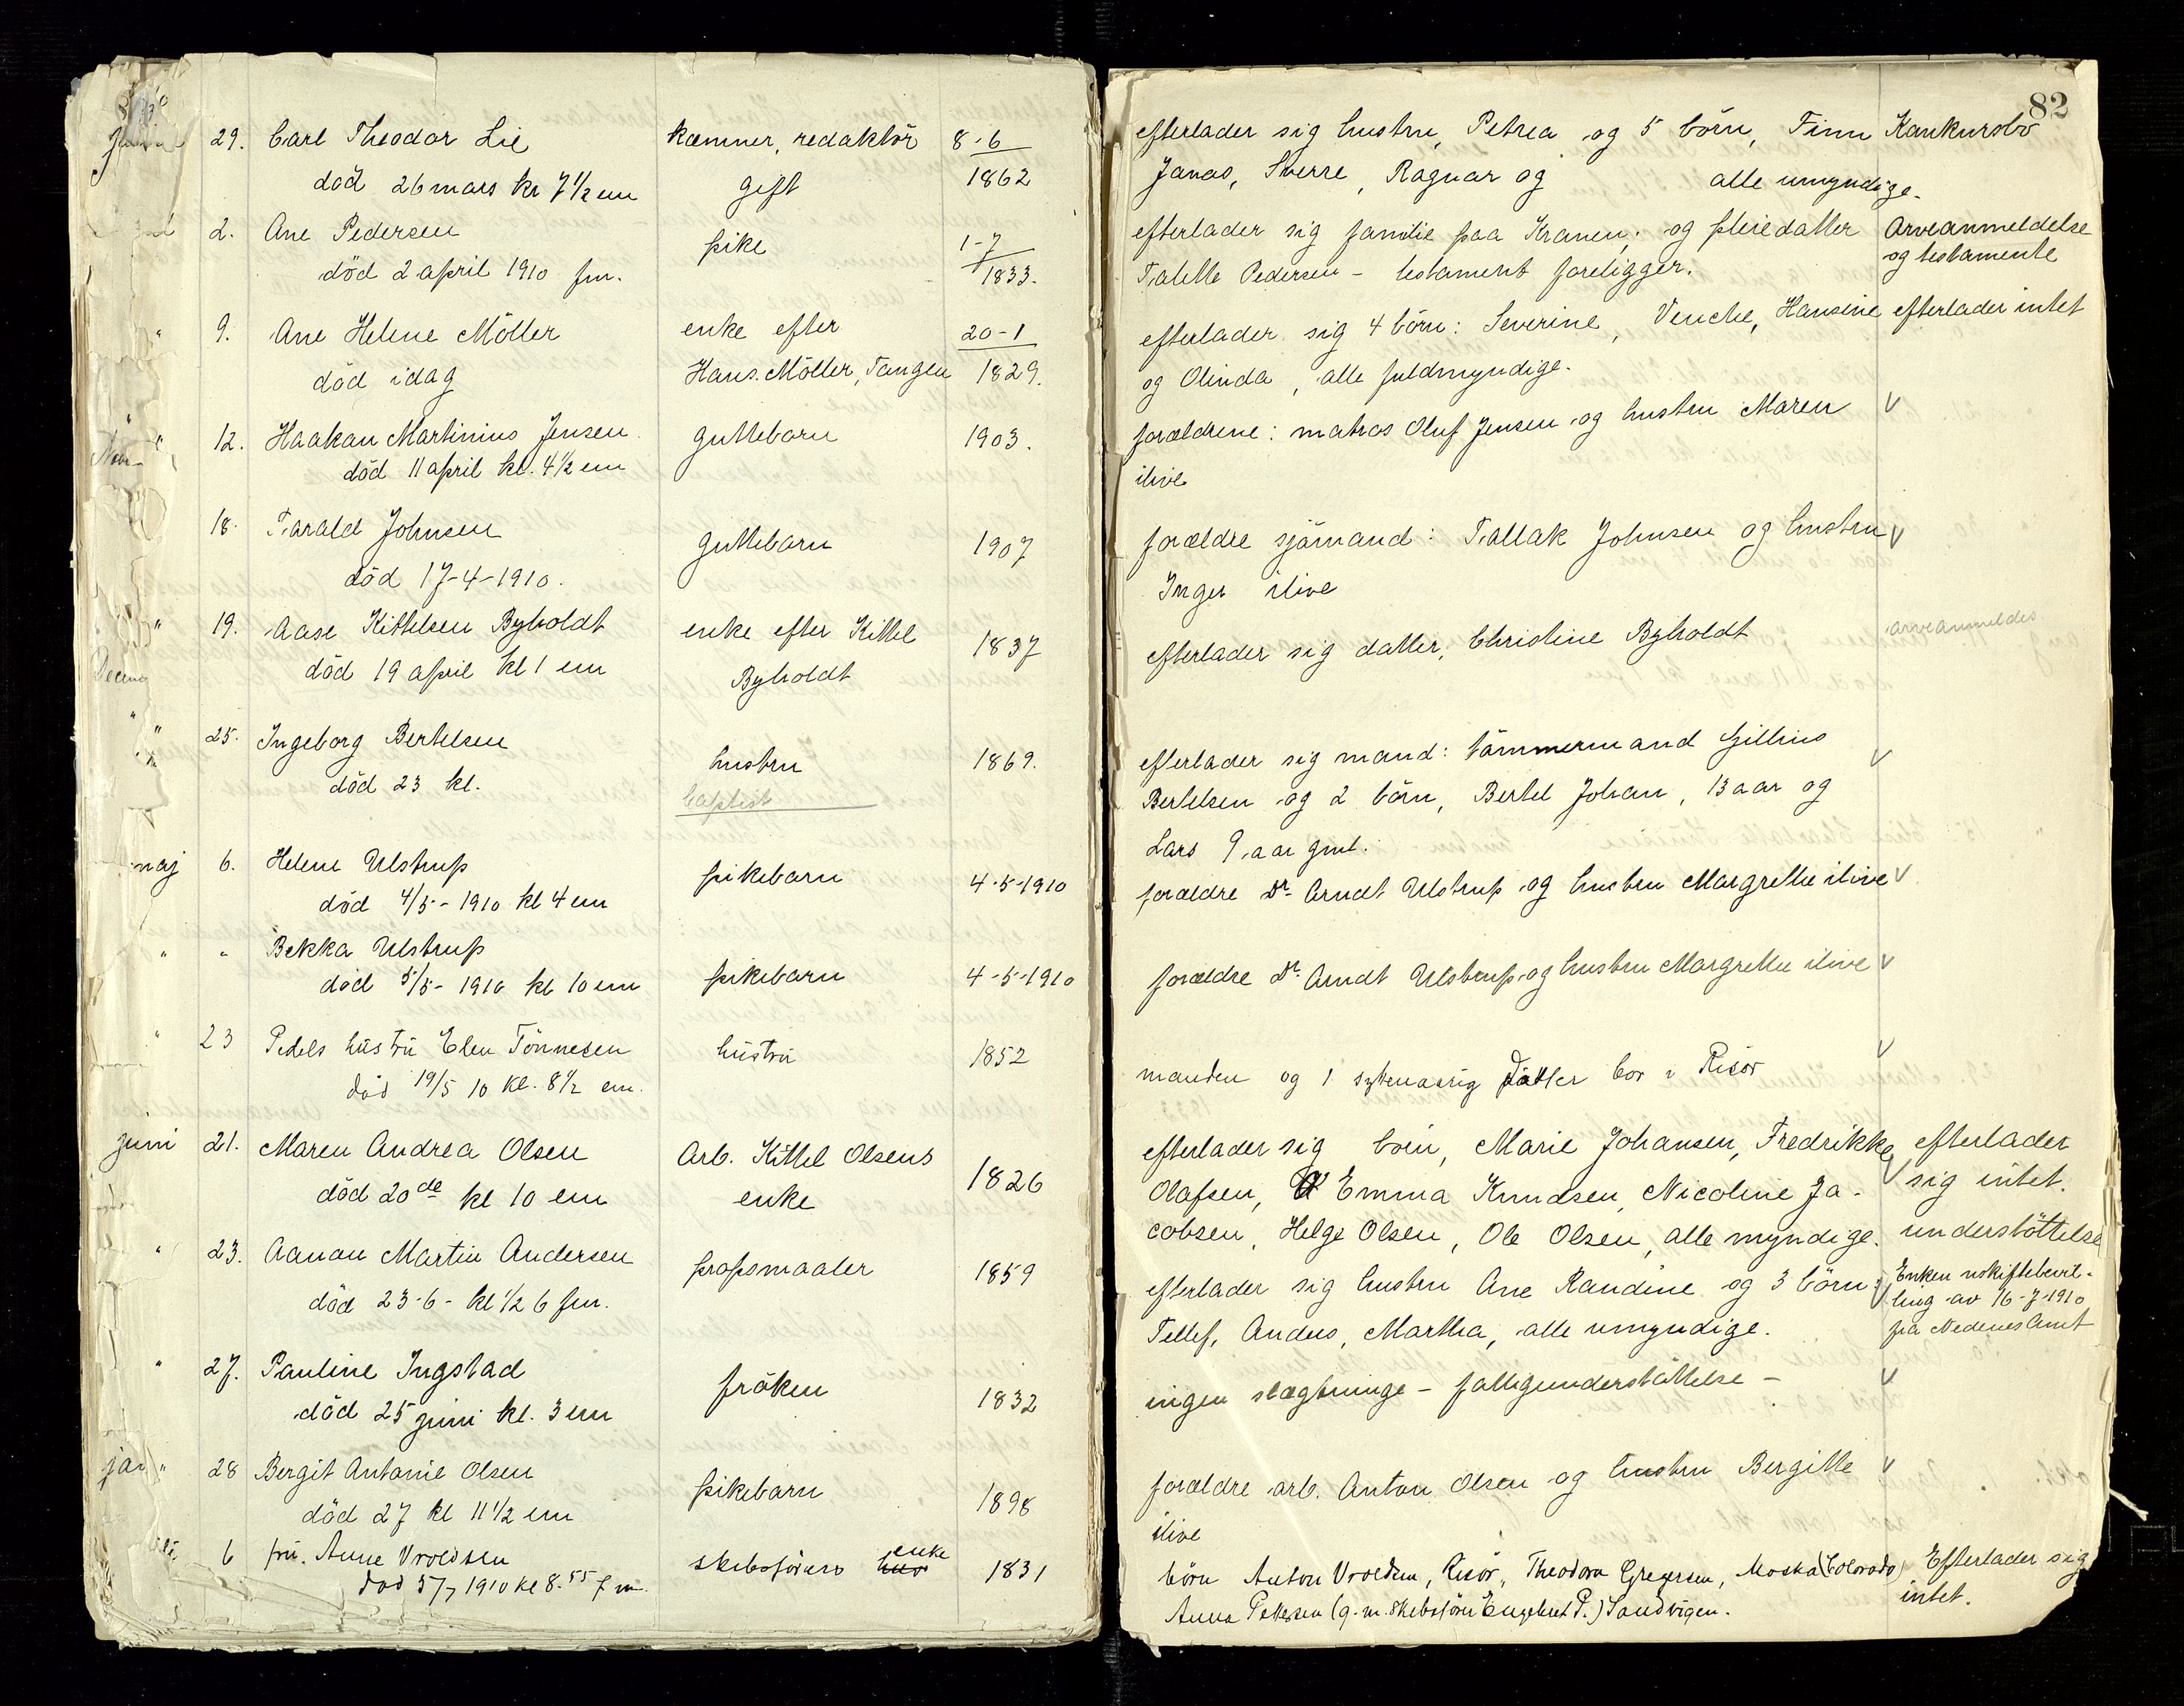 82
29. Carl Theodor Lie kæmner, redaktör 8-6 efterlader sig hustru, Petrea og 5 börn, Finn Konkursbo
död 26 mars kr 7 1/2 em gift 1862 Jonas, Sverre, Ragnar og alle umyndige.
2. Ane Pedersen pike 1-7 efterlader sig familie paa Kranen, og pleiedatter Arveanmeldelse
död 2 april 1910 fm. 1833. Talette Pedersen - testament foreligger. og testamente
" 9. Ane Helene Möller enke efter 20-1 efterlader sig 4 börn: Severine, Venche, Hansine efterlader intet
död idag Hans. Möller, Tangen 1829. og Olinda, alle fuldmyndige.
" 12. Haakon Martinius Jensen guttebarn 1903. forældrene: matros Oluf Jensen og hustru Maren V
död 11 april kl. 4 1/2 em ilive
18. Tarald Johnsen guttebarn 1907 forældre sjömand: Tallak Johnsen og hustru V
död 17-4-1910. Inger ilive
" 19. Aase Kittelsen Byholdt enke efter Kittel 1837 efterlader sig datter, Christine Byholdt arveanmeldes
död 19 april kl 1 em Byholdt
" 25. Ingeborg Bertelsen hustru 1869. efterlader sig mand: tömmermand Gillius V
död 23 kl. baptist Bertelsen og 2 börn, Bertel Johan, 13 aar og
Lars 9 aar gml.
maj 6. Helene Ulstrup pikebarn 4-5-1910 forældre Dr. Arndt Ulstrup og hustru Margrethe ilive V
död 4/5-1910 kl 4 em
" " Bekka Ulstrup pikebarn 4-5-1910 forældre Dr. Arndt Ulstrup og hustru Margrethe ilive V
död 5/5-1910 kl 10 em
" 23 Pedels hustru Elen Tönnesen hustru 1852 manden og 1 syttenaarig datter bor i Risör V
död 19/5 10 kl. 8 1/2 em.
juni 21. Maren Andrea Olsen Arb. Kittel Olsens 1826 efterlader sig börn, Marie Johansen, Fredrikke efterlader
död 20de kl 10 em enke Olafsen, Emma Knudsen, Nicoline Ja- V sig intet.
cobsen, Helge Olsen, Ole Olsen, alle myndige. understöttelse
" 23. Aanon Martin Andersen propsmaaler 1859 efterlader sig hustru Ane Randine og 3 börn: V Enken uskiftebevil-
död 23-6- kl 1/2 6 fm. Tellef, Anders, Martha, alle umyndige. ling av 16-7-1910
fra Nedenes Amt
" 27. Pauline Ingstad fröken 1832 ingen slægtninge - fattigunderstöttelse - V
död 25 juni kl. 3 em
" 28 Bergit Antonie Olsen pikebarn 1898 forældre arb. Anton Olsen og hustru Bergitte V
död 27 kl 11 1/2 em ilive
6 fru. Anne Vroldsen skibsförers enke 1831 börn Anton Vroldsen, Risör, Theodora Gregersen, Moska (Colorado) Efterlader sig
död 5/7 1910 kl 8.55 fm. Anna Pettersen (g. m. skibsförer Engebret P.) Sandvigen. intet.